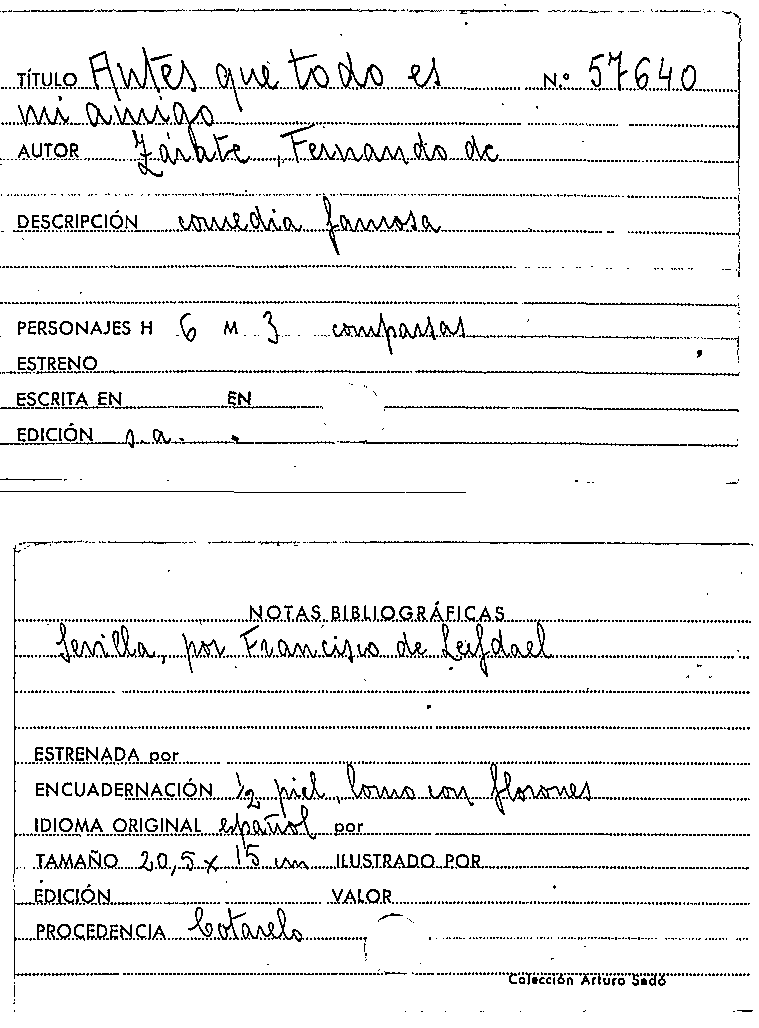 TÍTULO Antes que todo es N.º 57640
mi amigo
AUTOR Zárate, Fernando de
DESCRIPCIÓN comedia famosa
PERSONAJES H 6 M 3 comparsas
ESTRENO
ESCRITA EN EN
EDICIÓN s.a.
NOTAS BIBLIOGRÁFICAS
Sevilla, por Francisco de Leefdael
ESTRENADA por
ENCUADERNACIÓN 1/2 piel, lomo con florones
IDIOMA ORIGINAL español por
TAMAÑO 20,5 x 15 cm ILUSTRADO POR
EDICIÓN VALOR
PROCEDENCIA Cotarelo
Colección Arturo Sedó